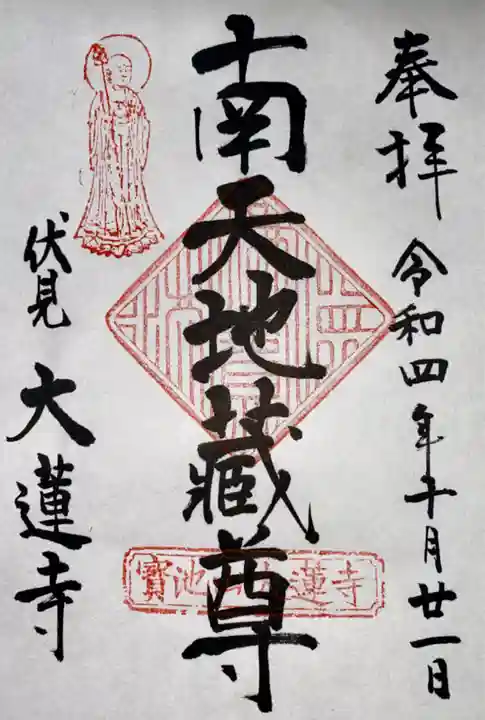 奉拝 令和四年十月廿一日
南天地藏尊
伏見 大蓮寺
寳池山大蓮寺